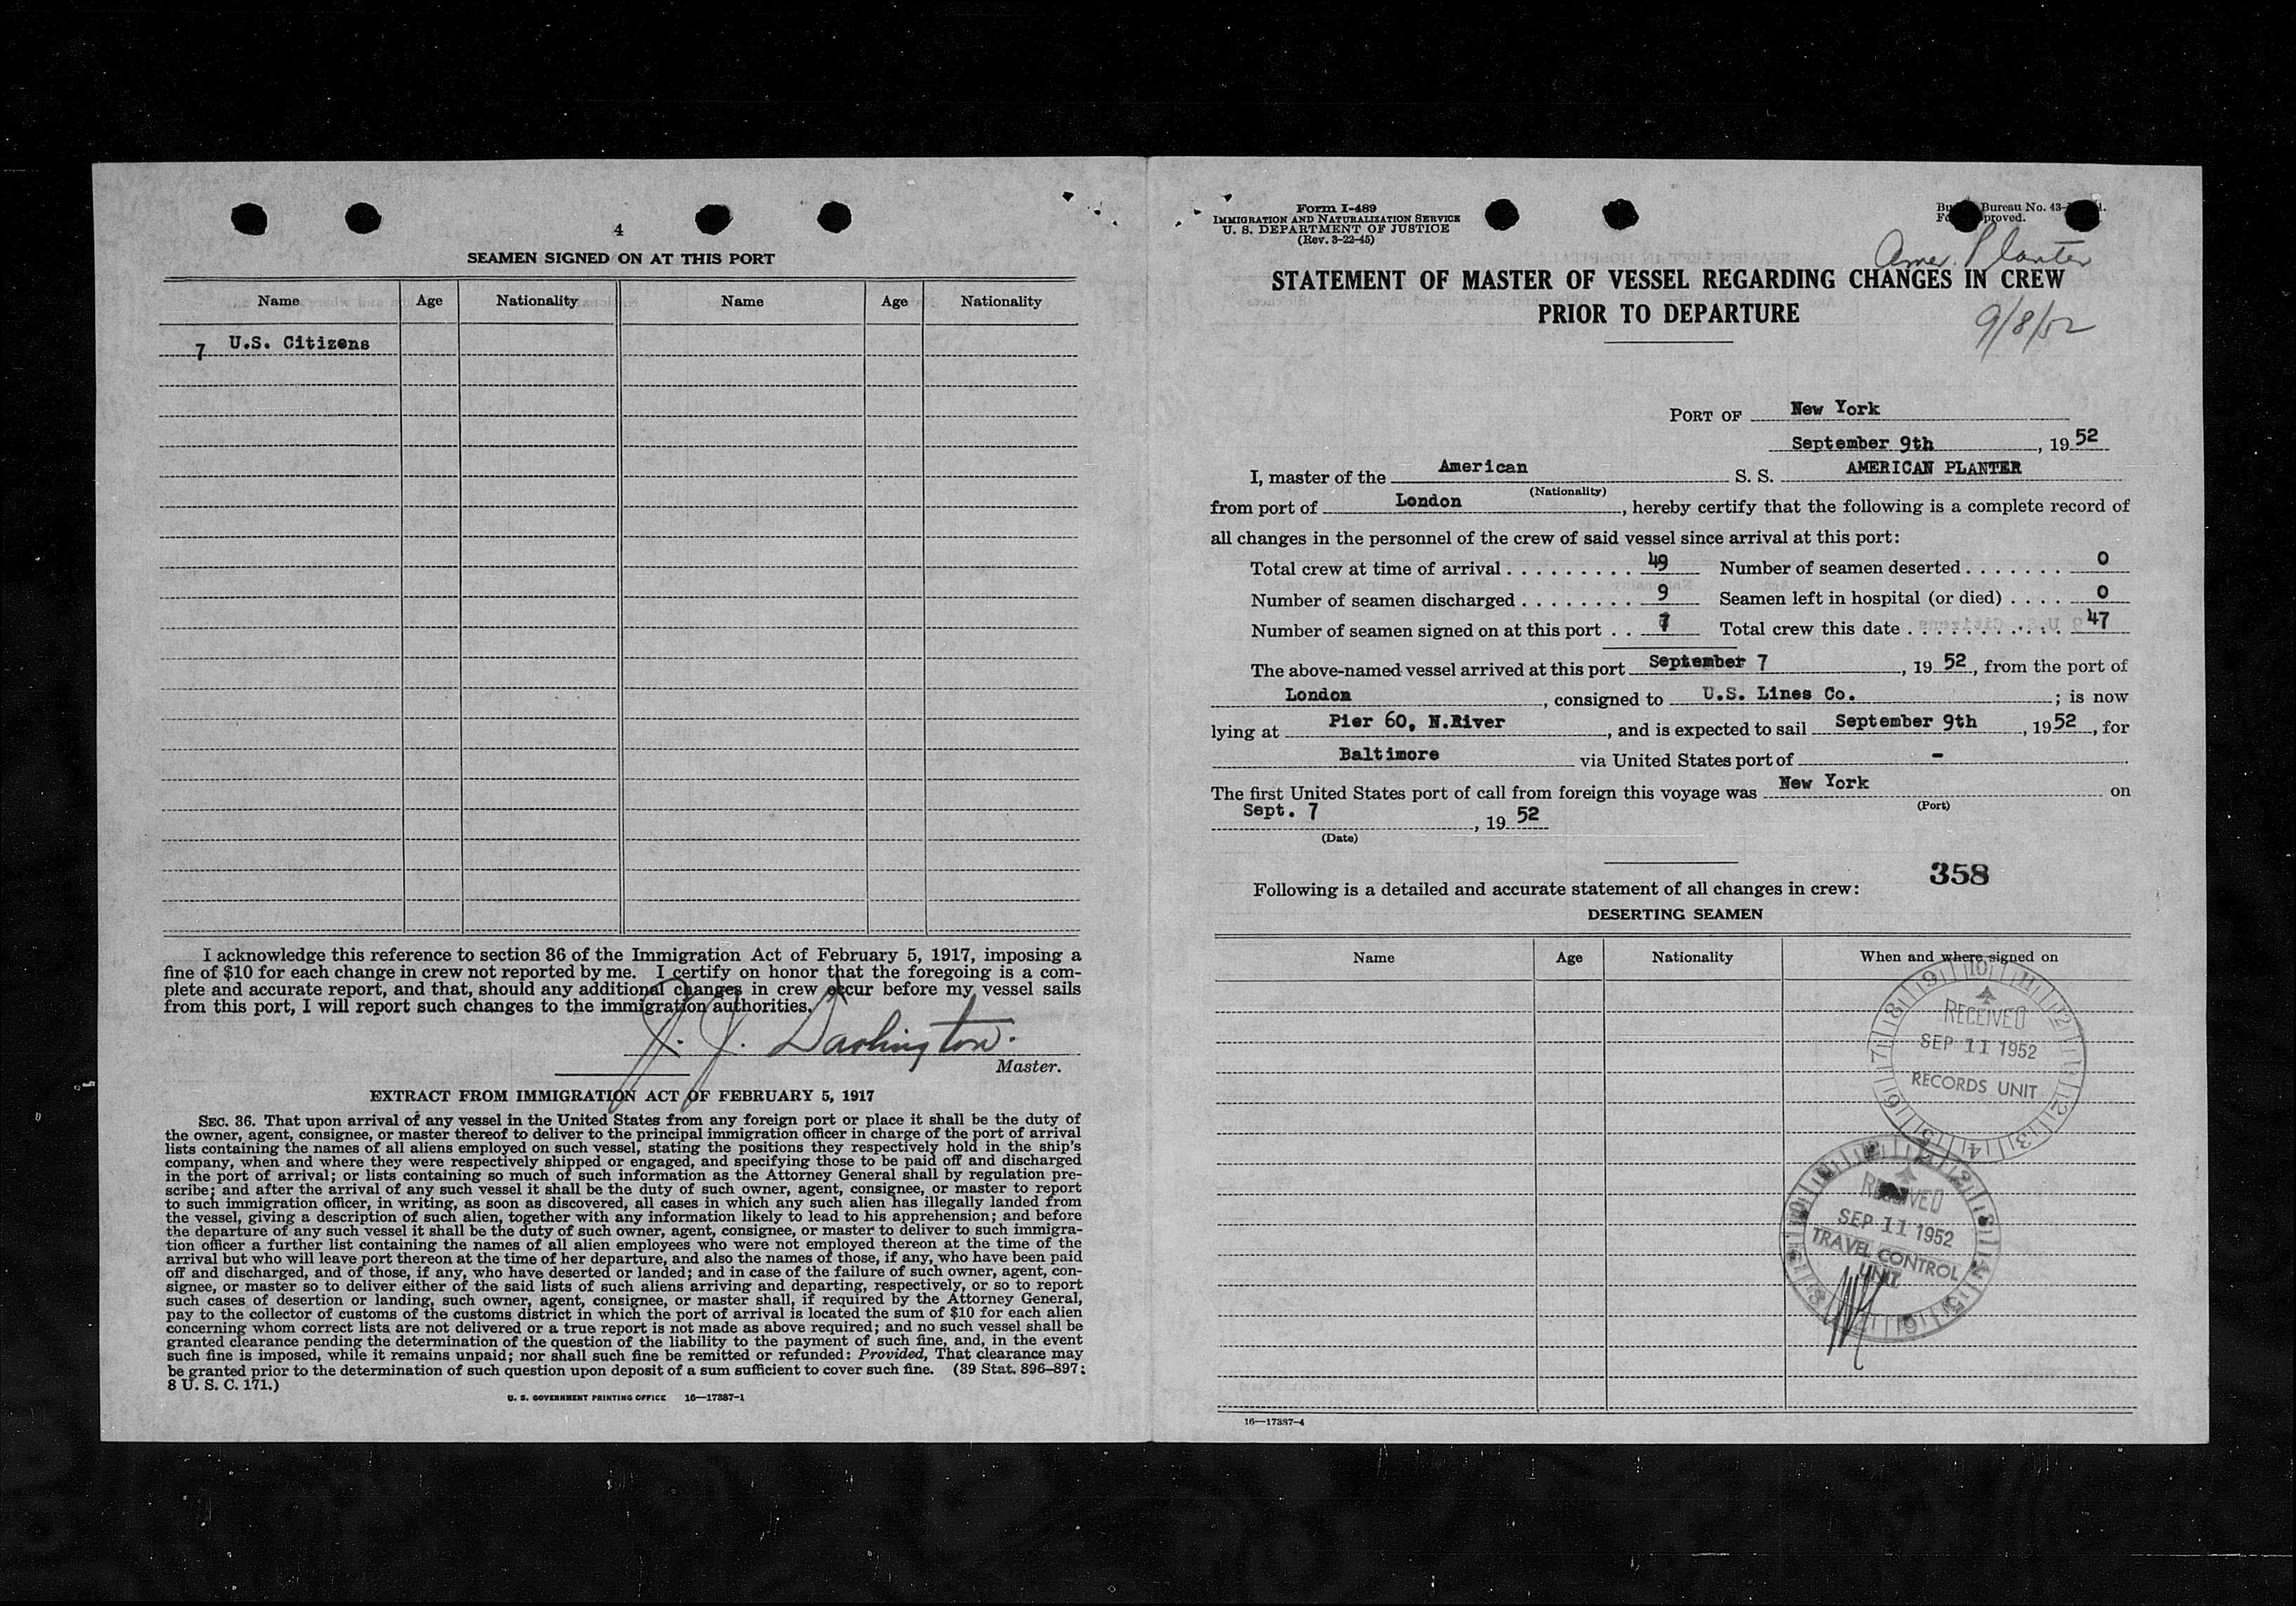 4
SEAMEN SIGNED ON AT THIS PORT
Name Age Nationality Name Age Nationality
7 U.S. Citizens
I acknowledge this reference to section 36 of the Immigration Act of February 5, 1917, imposing a
fine of $10 for each change in crew not reported by me. I certify on honor that the foregoing is a com-
plete and accurate report, and that, should any additional changes in crew occur before my vessel sails
from this port, I will report such changes to the immigration authorities.
J. Darlington.
Master.
EXTRACT FROM IMMIGRATION ACT OF FEBRUARY 5, 1917
SEC. 36. That upon arrival of any vessel in the United States from any foreign port or place it shall be the duty of
the owner, agent, consignee, or master thereof to deliver to the principal immigration officer in charge of the port of arrival
lists containing the names of all aliens employed on such vessel, stating the positions they respectively hold in the ship's
company, when and where they were respectively shipped or engaged, and specifying those to be paid off and discharged
in the port of arrival; or lists containing so much of such information as the Attorney General shall by regulation pre-
scribe; and after the arrival of any such vessel it shall be the duty of such owner, agent, consignee, or master to report
to such immigration officer, in writing, as soon as discovered, all cases in which any such alien has illegally landed from
the vessel, giving a description of such alien, together with any information likely to lead to his apprehension; and before
the departure of any such vessel it shall be the duty of such owner, agent, consignee, or master to deliver to such immigra-
tion officer a further list containing the names of all alien employees who were not employed thereon at the time of the
arrival but who will leave port thereon at the time of her departure, and also the names of those, if any, who have been paid
off and discharged, and of those, if any, who have deserted or landed; and in case of the failure of such owner, agent, con-
signee, or master so to deliver either of the said lists of such aliens arriving and departing, respectively, or so to report
such cases of desertion or landing, such owner, agent, consignee, or master shall, if required by the Attorney General,
pay to the collector of customs of the customs district in which the port of arrival is located the sum of $10 for each alien
concerning whom correct lists are not delivered or a true report is not made as above required; and no such vessel shall be
granted clearance pending the determination of the question of the liability to the payment of such fine, and, in the event
such fine is imposed, while it remains unpaid; nor shall such fine be remitted or refunded: Provided, That clearance may
be granted prior to the determination of such question upon deposit of a sum sufficient to cover such fine. (39 Stat. 896–897;
8 U. S. C. 171.)
U. S. GOVERNMENT PRINTING OFFICE 16—17387-1
Form I-489
IMMIGRATION AND NATURALIZATION SERVICE
U. S. DEPARTMENT OF JUSTICE
(Rev. 3-22-45)
Bureau No. 43-
Amer. Planter
STATEMENT OF MASTER OF VESSEL REGARDING CHANGES IN CREW
PRIOR TO DEPARTURE
9/8/52
PORT OF New York
September 9th, 19 52
I, master of the American S. S. AMERICAN PLANTER
(Nationality)
from port of London, hereby certify that the following is a complete record of
all changes in the personnel of the crew of said vessel since arrival at this port:
Total crew at time of arrival . . . . . . . . . . 49 Number of seamen deserted . . . . . . . 0
Number of seamen discharged . . . . . . . . 9 Seamen left in hospital (or died) . . . . 0
Number of seamen signed on at this port . . 7 Total crew this date . . . . . . . . . . . 47
The above-named vessel arrived at this port September 7, 19 52, from the port of
London, consigned to U.S. Lines Co.; is now
lying at Pier 60, N.River, and is expected to sail September 9th, 19 52, for
Baltimore via United States port of -
The first United States port of call from foreign this voyage was New York on
(Port)
Sept. 7, 19 52
(Date)
358
Following is a detailed and accurate statement of all changes in crew:
DESERTING SEAMEN
Name Age Nationality When and where signed on
RECEIVED
SEP 11 1952
RECORDS UNIT
RECEIVED
SEP 11 1952
TRAVEL CONTROL
UNIT
16—17387-4